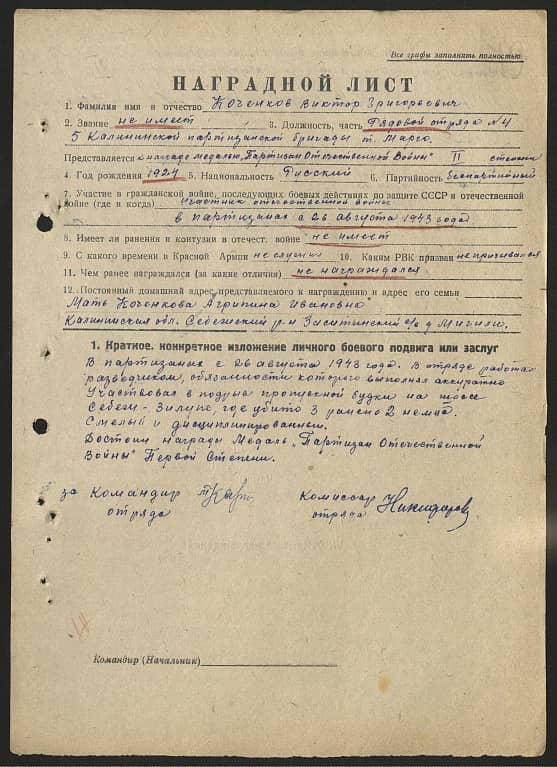 Все графы заполнять полностью
НАГРАДНОЙ ЛИСТ
1. Фамилия имя и отчество Коченков Виктор Григорьевич
2. Звание не имеет 3. Должность, часть Рядовой отряда №4
5 Калининской партизанской бригады т. Марго.
Представляется к награде медалью, Партизан Отечественной Войны" II степени
4. Год рождения 1924 5. Национальность Русский 6. Партийность Беспартийный
7. Участие в гражданской войне, последующих боевых действиях по защите СССР и отечественной
войне (где и когда) Участник отечественной войны
в партизанах с 26 августа 1943 года
8. Имеет ли ранения и контузии в отечест. войне не имеет
9. С какого времени в Красной Армии не служил 10. Каким РВК призван не призывался
11. Чем ранее награждался (за какие отличия) не награждался
12. Постоянный домашний адрес представляемого к награждению и адрес его семьи
Мать Коченкова Агрипина Ивановна
Калининская обл. Себежский р-н Заситинский с/с д
1. Краткое, конкретное изложение личного боевого подвига или заслуг
В партизанах с 26 августа 1943 года. В отряде работал
разведчиком, обязанности которого выполнял аккуратно
Участвовал в подрыв пропускной будки на шоссе
Себеж - Зилупе, где убито 3 ранено 2 немца.
Смелый и дисциплинированный.
Достоин награды Медаль „Партизан Отечественной
Войны" Первой Степени.
за Командир Комиссар
отряда отряда
14
Командир (Начальник)